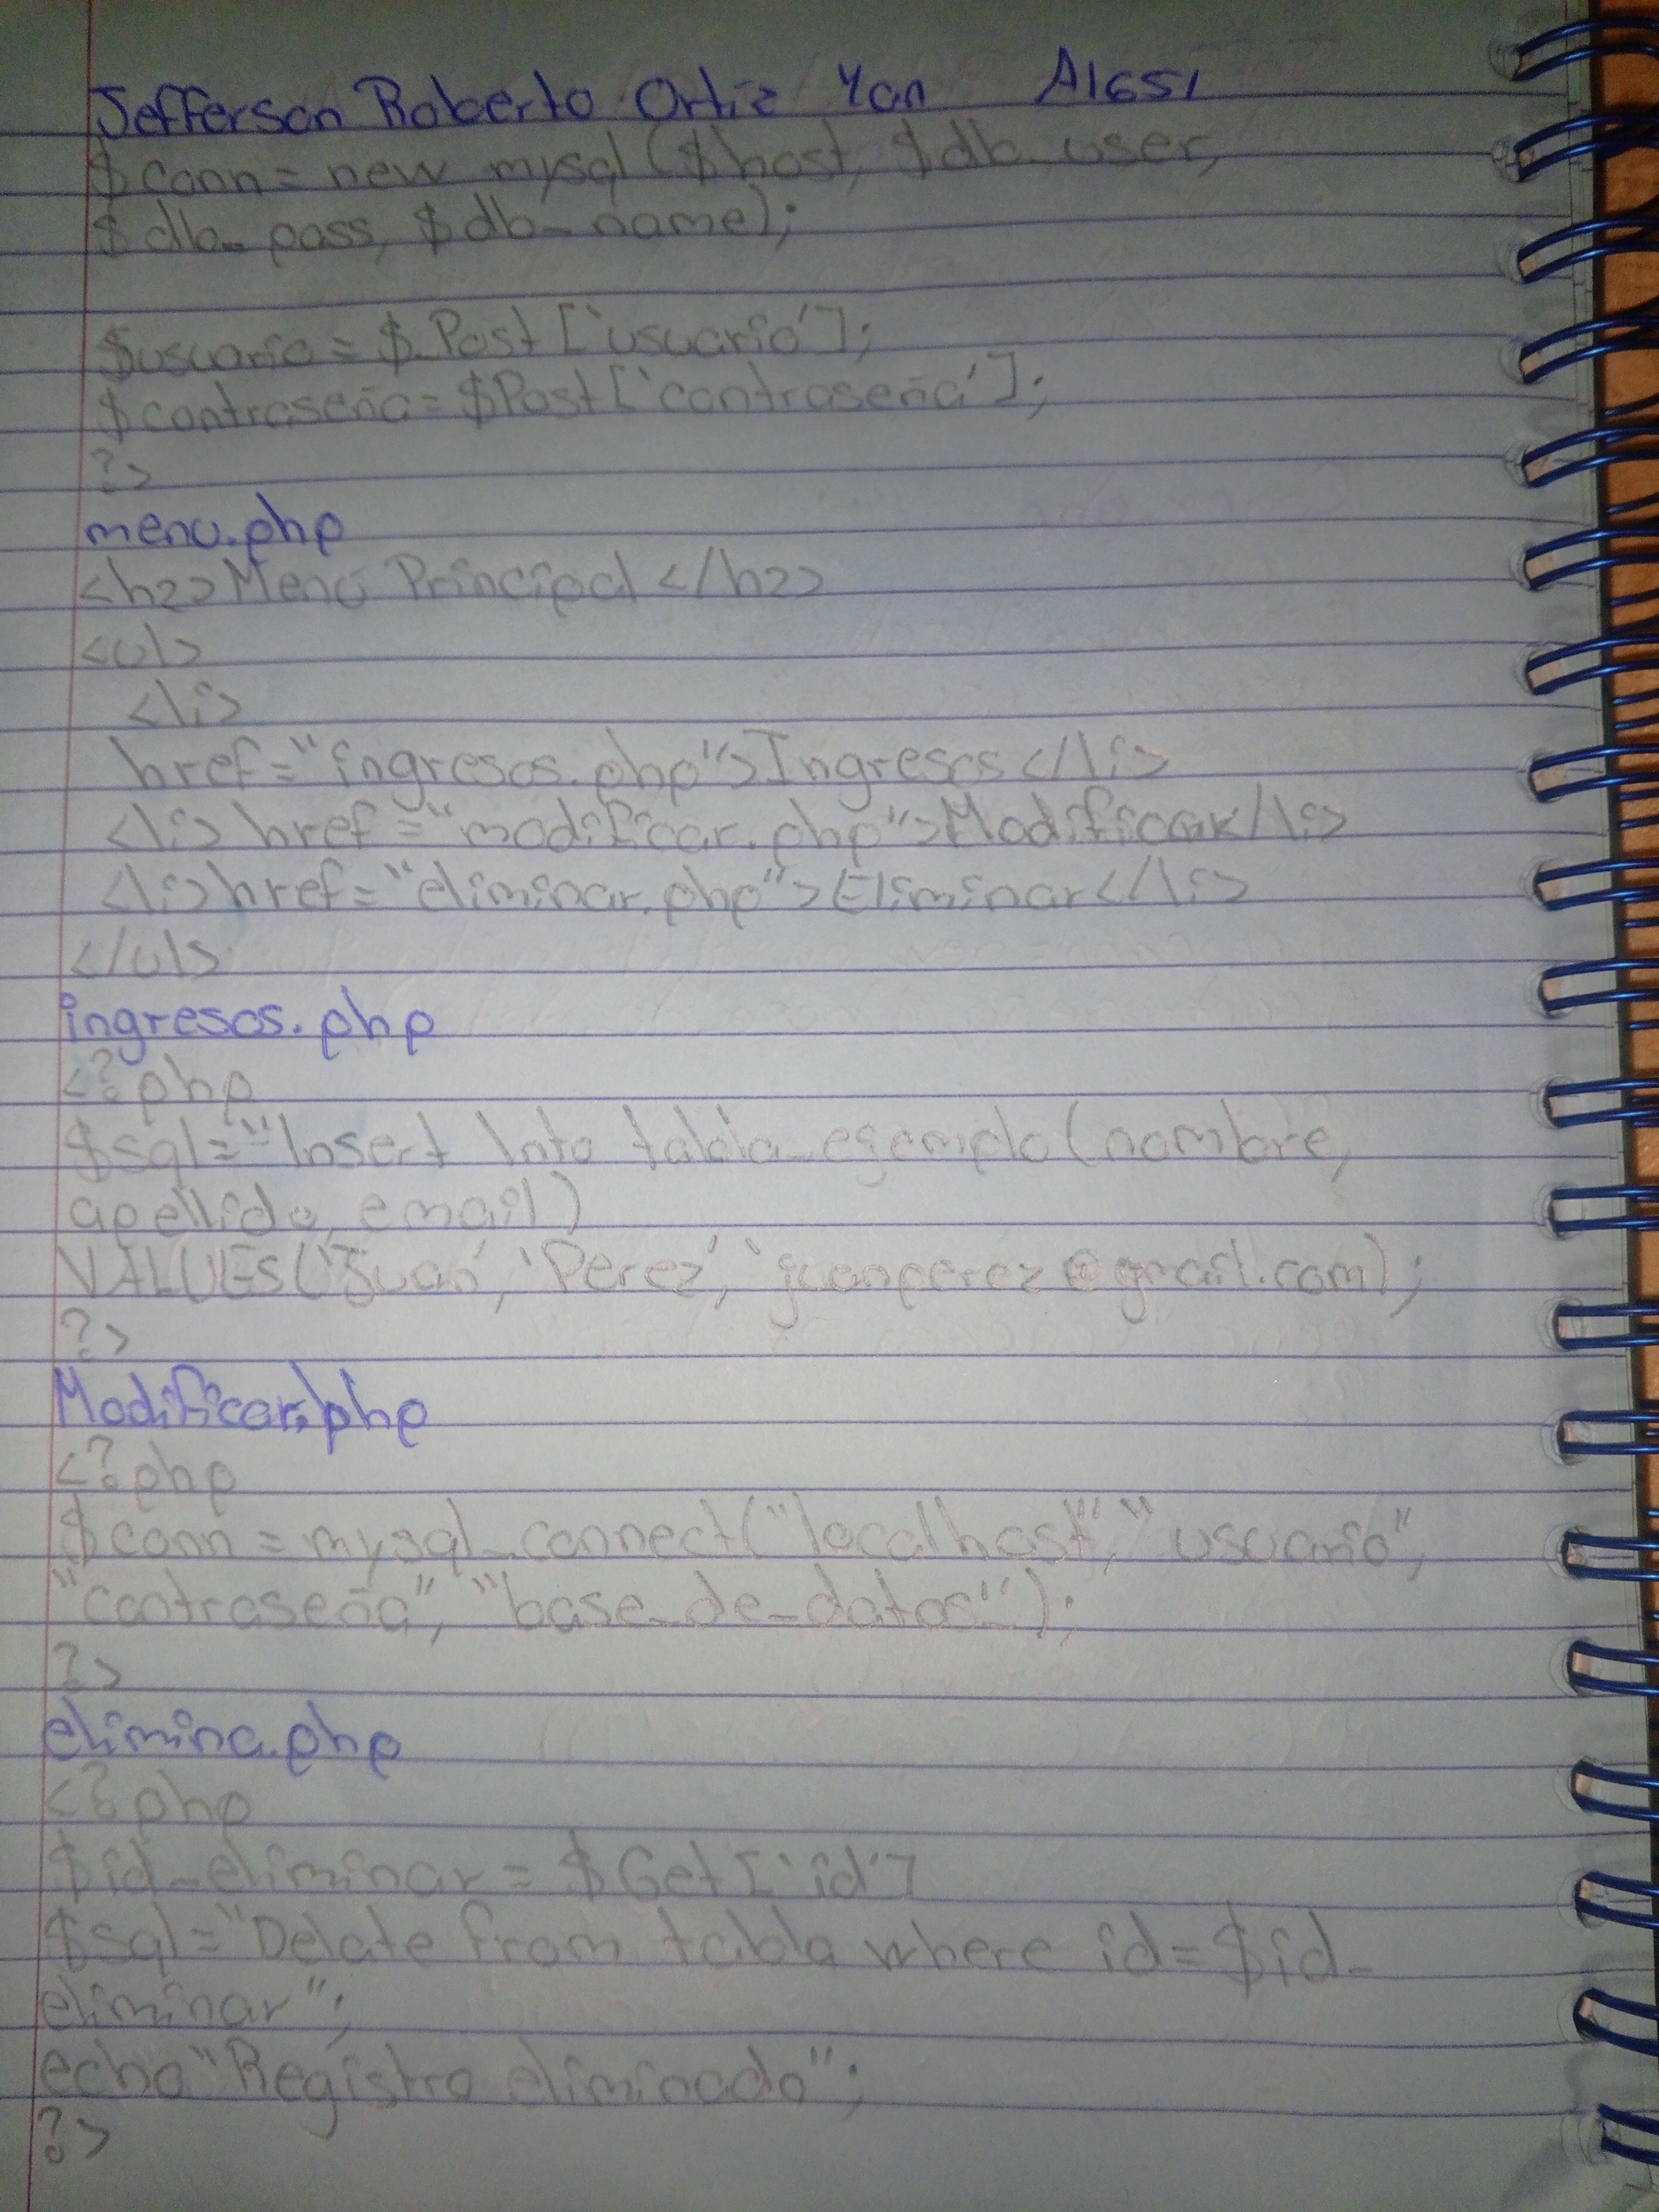 Jefferson Roberto Ortiz Yan A1651
$conn = new mysql ($host, $db_user,
$db_pass, $db_name);
$usuario = $_Post ['usuario'];
$contraseña = $Post ['contraseña'];
?>
menu.php
<h2>Menú Principal </h2>
<ul>
<li>
href="ingresos.php">Ingresos</li>
<li>href="modificar.php">Modificar</li>
<li>href="eliminar.php">Eliminar</li>
</uls
ingresos.php
<?php
$sql="Insert Into tabla_ejemplo(nombre,
apellido, email)
VALUES('Juan', 'Perez', 'juanperez@gmail.com);
?>
Modificar.php
<?php
$conn = mysql_connect("localhost", "usuario",
"contraseña", "base_de_datos");
?>
elimina.php
<?php
$id_eliminar = $Get ['id']
$sql="Delate from tabla where id=$id_
eliminar";
echo "Registro eliminado";
?>